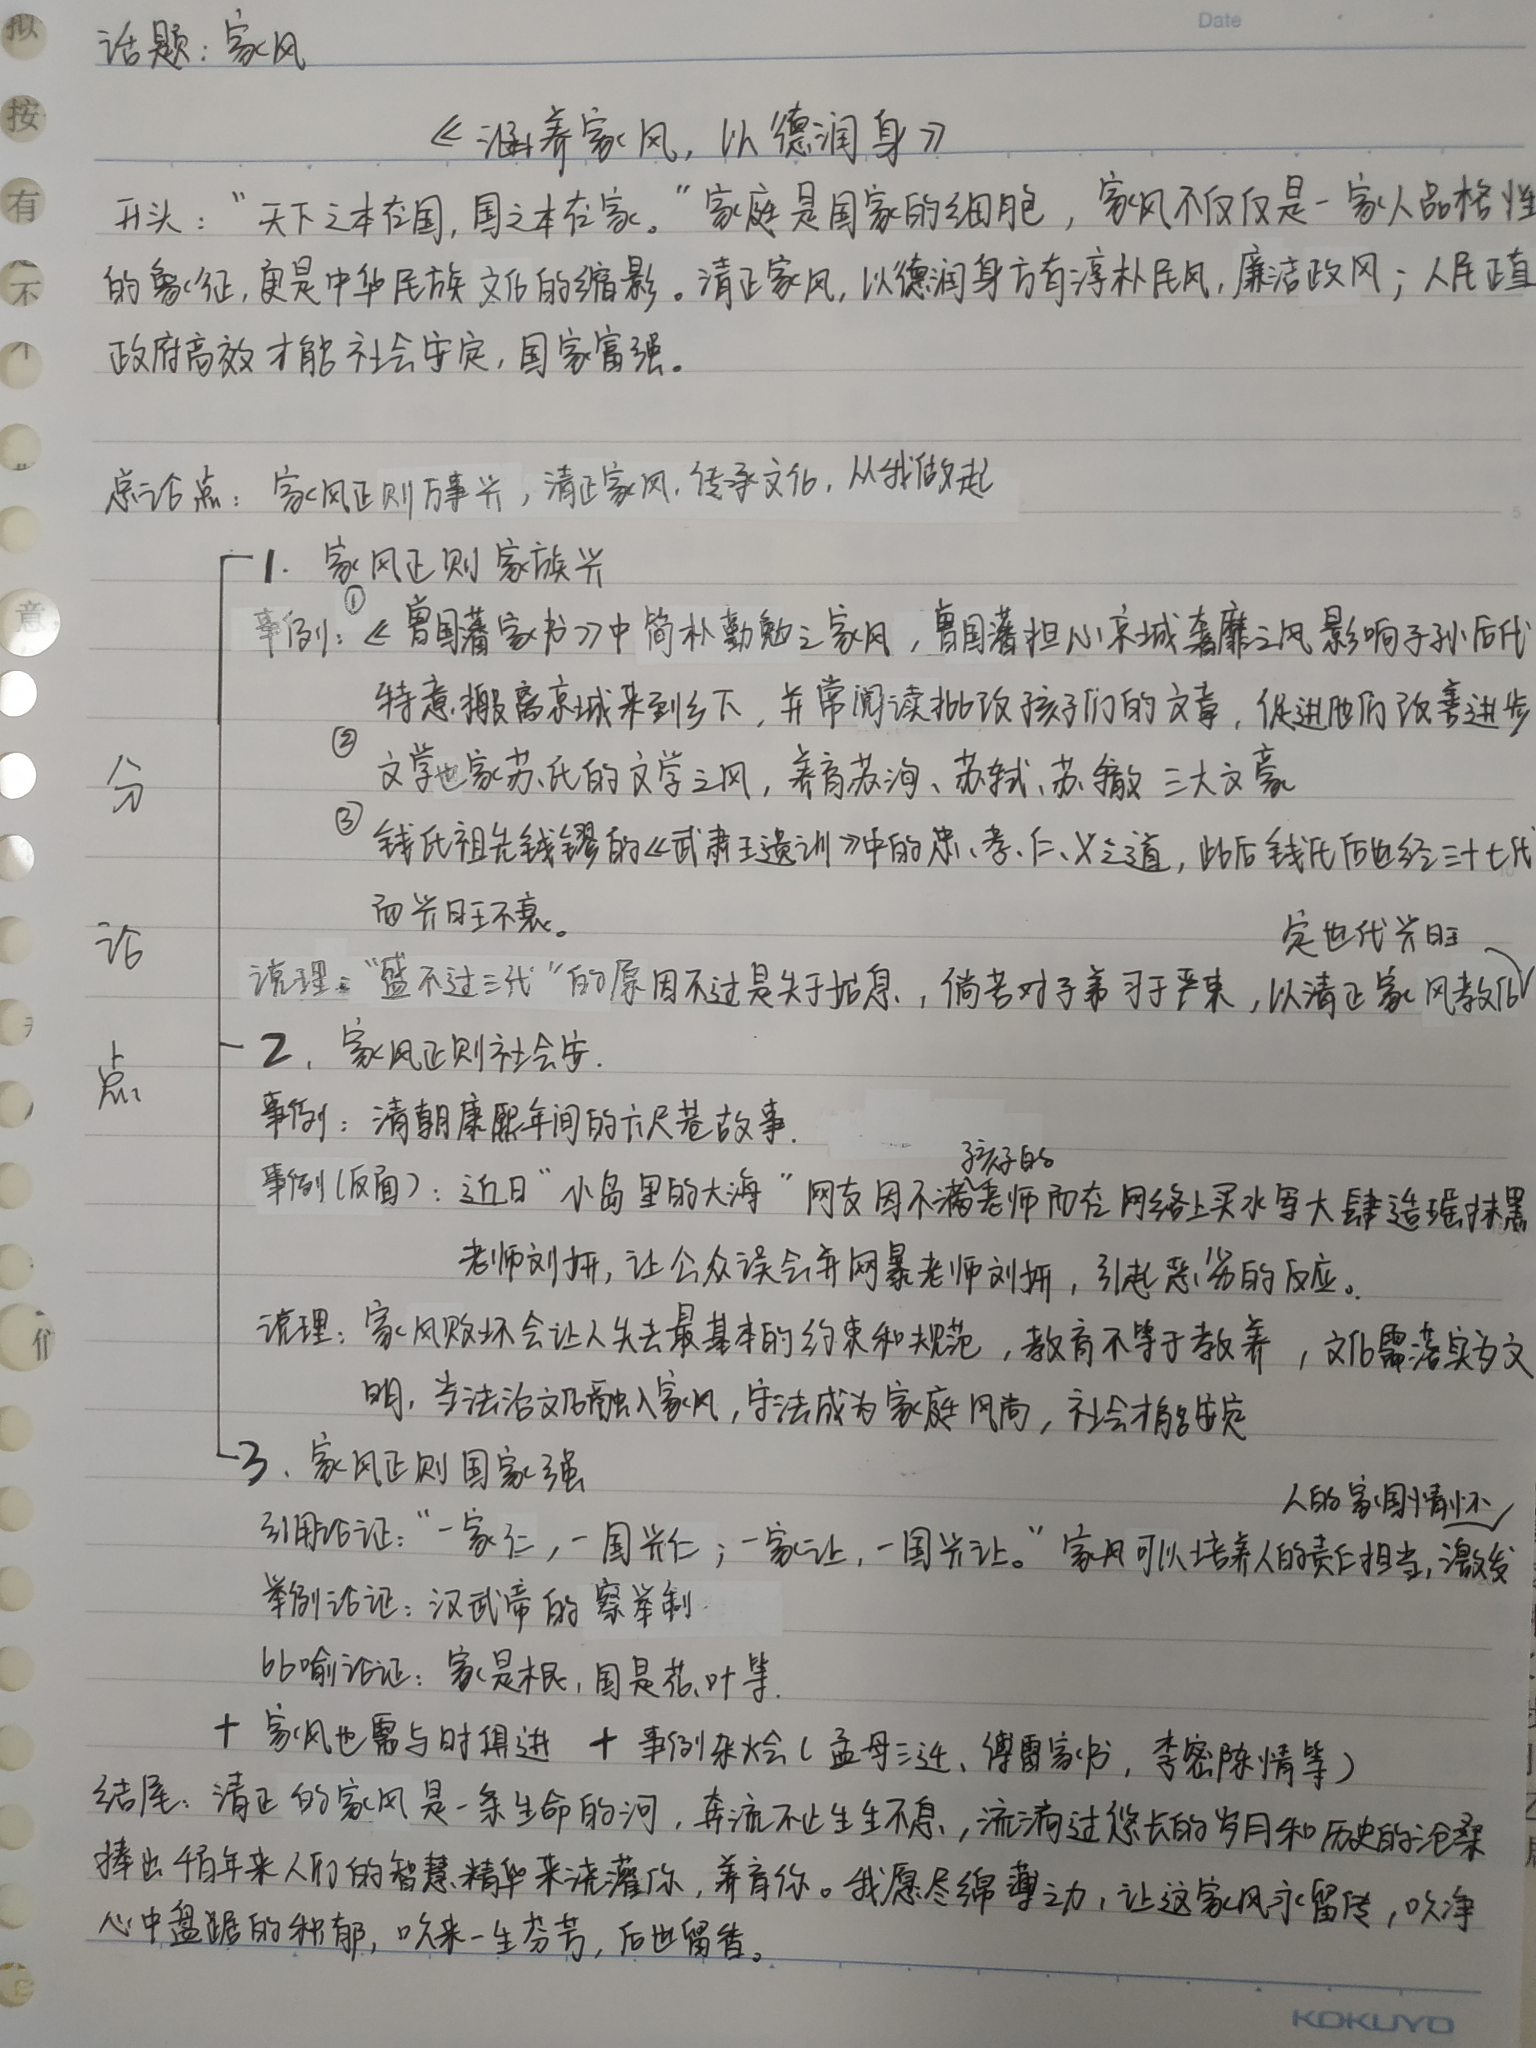 Date
话题：家风
《涵养家风，以德润身》
开头："天下之本在国，国之本在家。"家庭是国家的细胞，家风不仅仅是一家人品格性
的象征，更是中华民族文化的缩影。清正家风，以德润身方有淳朴民风，廉洁政风；人民正直
政府高效才能社会安定，国家富强。
总论点：家风正则万事兴，清正家风，传承文化，从我做起
分论点
1. 家风正则家族兴
事例：①《曾国藩家书》中简朴勤勉之家风，曾国藩担心京城奢靡之风影响子孙后代
特意搬离京城来到乡下，并常阅读批改孩子们的文章，促进他们改善进步
② 文学世家苏氏的文学之风，养育苏洵、苏轼、苏辙三大文豪
③ 钱氏祖先钱镠的《武肃王遗训》中的忠、孝、仁、义之道，此后钱氏后世经三十七代
而兴旺不衰。
定世代兴旺
说理："盛不过三代"的原因不过是失于姑息，倘若对子弟习于严束，以清正家风教化
2. 家风正则社会安.
事例：清朝康熙年间的六尺巷故事.
孩子的
事例(反面)：近日"小岛里的大海"网友因不满老师而在网络上买水军大肆造谣抹黑
老师刘妍，让公众误会并网暴老师刘妍，引起恶劣的反应。
说理：家风败坏会让人失去最基本的约束和规范，教育不等于教养，文化需落实为文
明，当法治文化融入家风，守法成为家庭风尚，社会才能安定
3. 家风正则国家强
人的家国情怀
引用论证："一家仁，一国兴仁；一家让，一国兴让。"家风可以培养人的责任担当，激发
举例论证：汉武帝的察举制
比喻论证：家是根，国是花、叶等.
+ 家风也需与时俱进 + 事例杂烩(孟母三迁、傅雷家书，李密陈情等)
结尾：清正的家风是一条生命的河，奔流不止生生不息，流淌过悠长的岁月和历史的沧桑
捧出千百年来人们的智慧精华来浇灌你，养育你。我愿尽绵薄之力，让这家风永留传，吹净
心中盘踞的秽郁，吹来一生芬芳，后世留香。
KOKUYO